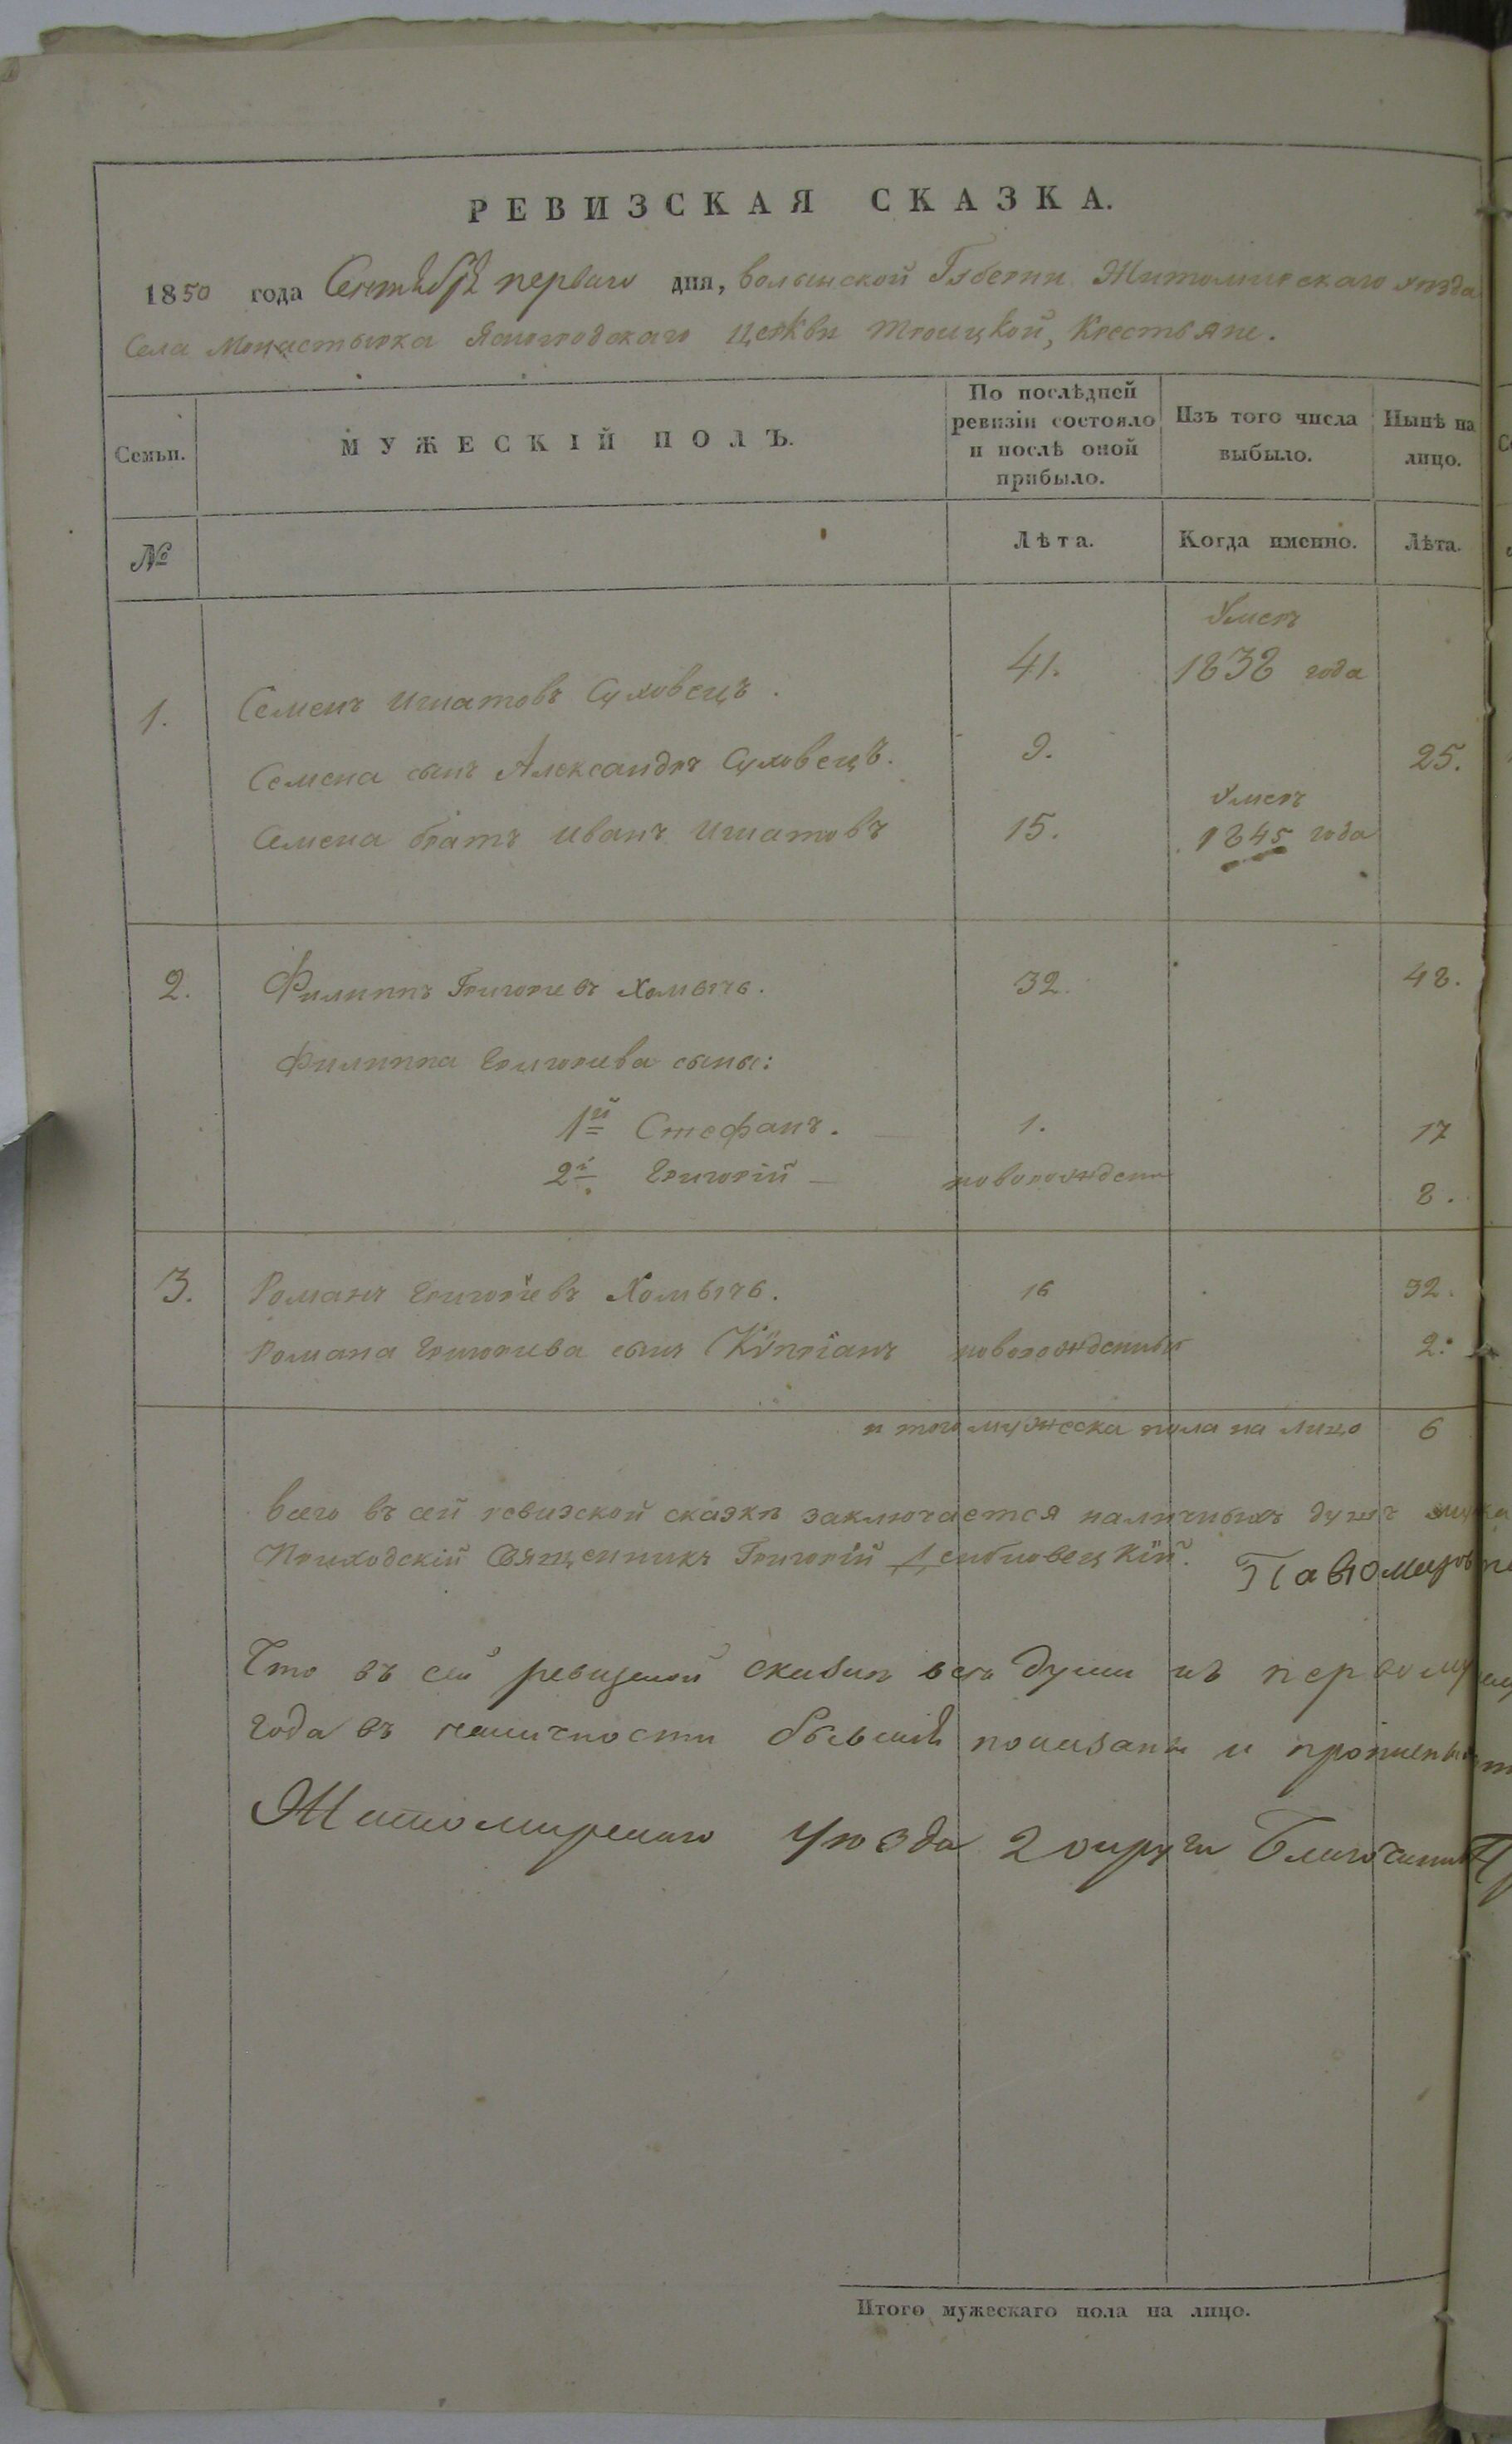 РЕВИЗСКАЯ СКАЗКА.
1850 года Сентября перваго дня, Волынской Губерніи Житомирскаго уѣзда
Села Монастырка Ясногродскаго Церкви Троицкой, Крестьяне.
Семьи.
МУЖЕСКІЙ ПОЛЪ.
По послѣдней ревизіи состояло и послѣ оной прибыло.
Изъ того числа выбыло.
Нынѣ на лицо.
№
Лѣта.
Когда именно.
Лѣта.
1. Семенъ Игнатовъ Суховецъ. 41. Умеръ 1838 года
Семена сынъ Александръ Суховецъ. 9. 25.
Семена братъ Иванъ Игнатовъ 15. Умеръ 1845 года
2. Филиппъ Григориевъ Хомычъ. 32. 48.
Филиппа Григориева сыны:
1й Стефанъ. 1. 17
2й Григорій новорожденн 8.
3. Романъ Григоріевъ Хомычъ. 16 32.
Романа Григориева сынъ Кѵпріанъ новорожденный 2.
итого мужеска пола на лицо 6
Всего въ сей ревизской сказкѣ заключается наличныхъ душъ
Приходскій Священникъ Григорій
Что въ сей ревизской сказкѣ всѣ души къ первому
года въ наличности бывшія показаны и
Житомирскаго Уѣзда 2 округи Благочинный
Итого мужескаго пола на лицо.